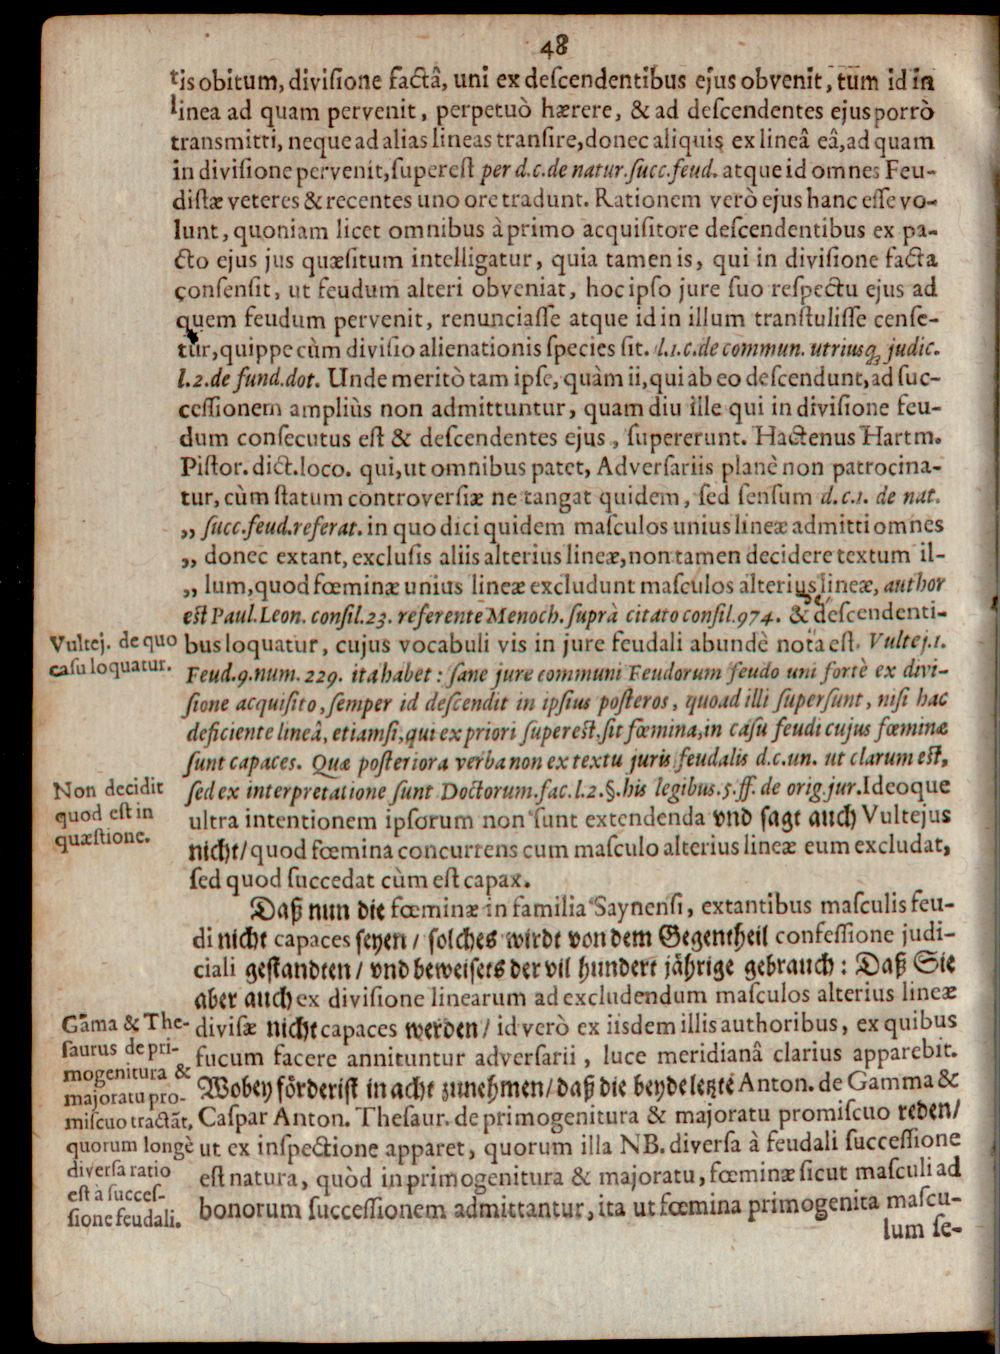 48
tis obitum, divisione factâ, uni ex descendentibus ejus obvenit, tum id in
linea ad quam pervenit, perpetuò hærere, & ad descendentes ejus porrò
transmitti, neque ad alias lineas transire, donec aliquis ex lineâ eâ, ad quam
in divisione pervenit, superest per d.c. de natur. succ. feud. atque id omnes Feu-
distæ veteres & recentes uno ore tradunt. Rationem verò ejus hanc esse vo-
lunt, quoniam licet omnibus à primo acquisitore descendentibus ex pa-
cto ejus jus quæsitum intelligatur, quia tamen is, qui in divisione facta
consensit, ut feudum alteri obveniat, hoc ipso jure suo respectu ejus ad
quem feudum pervenit, renunciasse atque id in illum transtulisse cense-
tur, quippe cùm divisio alienationis species sit. l.1.c. de commun. utriusq; judic.
l.2. de fund. dot. Unde meritò tam ipse, quàm ii, qui ab eo descendunt, ad suc-
cessionem ampliùs non admittuntur, quam diu ille qui in divisione feu-
dum consecutus est & descendentes ejus, supererunt. Hactenus Hartm.
Pistor. dict. loco. qui, ut omnibus patet, Adversariis planè non patrocina-
tur, cùm statum controversiæ ne tangat quidem, sed sensum d.c.1. de nat.
„ succ. feud. referat. in quo dici quidem masculos unius lineæ admitti omnes
„ donec extant, exclusis aliis alterius lineæ, non tamen decidere textum il-
„ lum, quod fœminæ unius lineæ excludunt masculos alterius lineæ, author
est Paul. Leon. consil. 23. referente Menoch. suprà citato consil. 974. & de descendenti-
Vultej. de quo
casu loquatur.
bus loquatur, cujus vocabuli vis in jure feudali abundè nota est. Vultej. 1.
Feud. 9. num. 229. ita habet: sane jure communi Feudorum feudo uni fortè ex divi-
sione acquisito, semper id descendit in ipsius posteros, quoad illi supersunt, nisi hac
deficiente lineâ, etiamsi, qui ex priori superest, sit fœmina, in casu feudi cujus fœminæ
sunt capaces. Quæ posteriora verba non ex textu juris feudalis d.c. un. ut clarum est,
Non decidit
quod est in
quæstione.
sed ex interpretatione sunt Doctorum. fac. l. 2. §. his legibus. 5. ff. de orig. jur. Ideoque
ultra intentionem ipsorum non sunt extendenda vnd sagt auch Vultejus
nicht/ quod fœmina concurrens cum masculo alterius lineæ eum excludat,
sed quod succedat cùm est capax.
Daß nun die fœminæ in familia Saynensi, extantibus masculis feu-
di nicht capaces seyen/ solches wirdt von dem Gegentheil confessione judi-
ciali gestandten/ vnd beweisets der vil hundert jährige gebrauch: Daß Sie
aber auch ex divisione linearum ad excludendum masculos alterius lineæ
Gāma & The-
saurus de pri-
mogenitura &
majoratu pro-
miscuo tractāt,
quorum longè
diversa ratio
est à succes-
sione feudali.
divisæ nicht capaces werden/ id verò ex iisdem illis authoribus, ex quibus
fucum facere annituntur adversarii, luce meridianâ clarius apparebit.
Wobey förderist in acht zunehmen/ daß die beyde letzte Anton. de Gamma &
Caspar Anton. Thesaur. de primogenitura & majoratu promiscuo reden/
ut ex inspectione apparet, quorum illa NB. diversa à feudali successione
est natura, quòd in primogenitura & majoratu, fœminæ sicut masculi ad
bonorum successionem admittantur, ita ut fœmina primogenita mascu-
lum se-